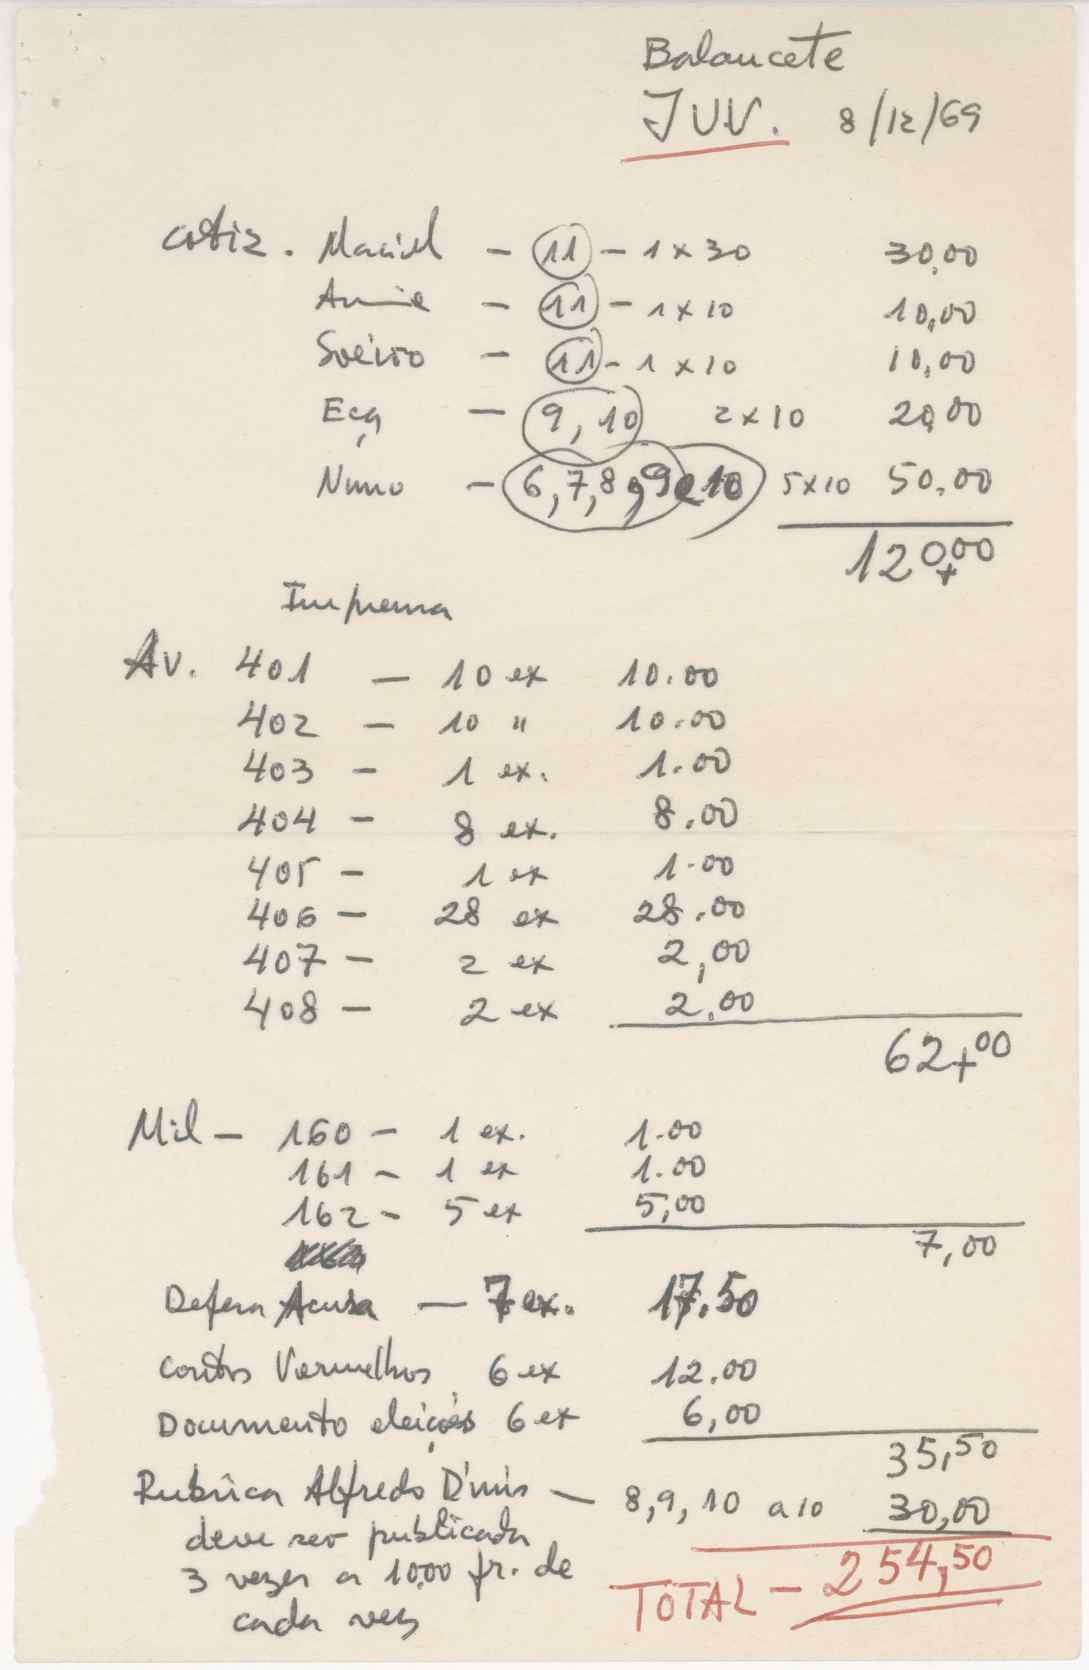 Balancete
JUV. 8/12/69
cotiz. Maciel - 11 - 1 x 30 30,00
Annie - 11 - 1 x 10 10,00
Soeiro - 11 - 1 x 10 10,00
Eça - 9, 10 2 x 10 20,00
Nuno - 6, 7, 8, 9 e 10 5 x 10 50,00
120,00
Imprensa
Av. 401 - 10 ex 10.00
402 - 10 " 10.00
403 - 1 ex. 1.00
404 - 8 ex. 8.00
405 - 1 ex 1.00
406 - 28 ex 28.00
407 - 2 ex 2,00
408 - 2 ex 2,00
62+00
Mil - 160 - 1 ex. 1.00
161 - 1 ex 1.00
162 - 5 ex 5,00
7,00
Defesa Acusa - 7 ex. 17.50
contos Vermelhos 6 ex 12.00
Documento eleições 6 ex 6,00
35,50
Rubrica Alfredo Dinis - 8, 9, 10 a 10 30,00
deve ser publicada
3 vezes a 10,00 fr. de
cada vez
TOTAL - 254,50